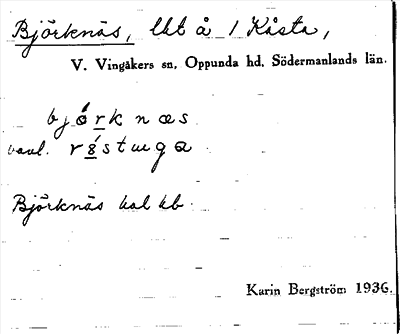 Björknäs, lht å 1 Kåsta,
V. Vingåkers sn, Oppunda hd, Södermanlands län.
bjórknæs
vanl. rśstuga
Björknäs kal kb
Karin Bergström 1936.